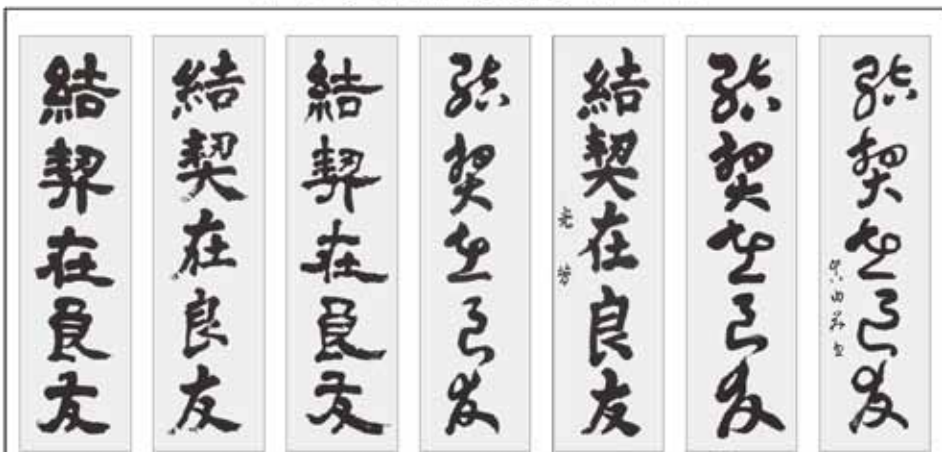 結契在良友
結契在良友
結契在良友
結契在良友
結契在良友
結契在良友
結契在良友